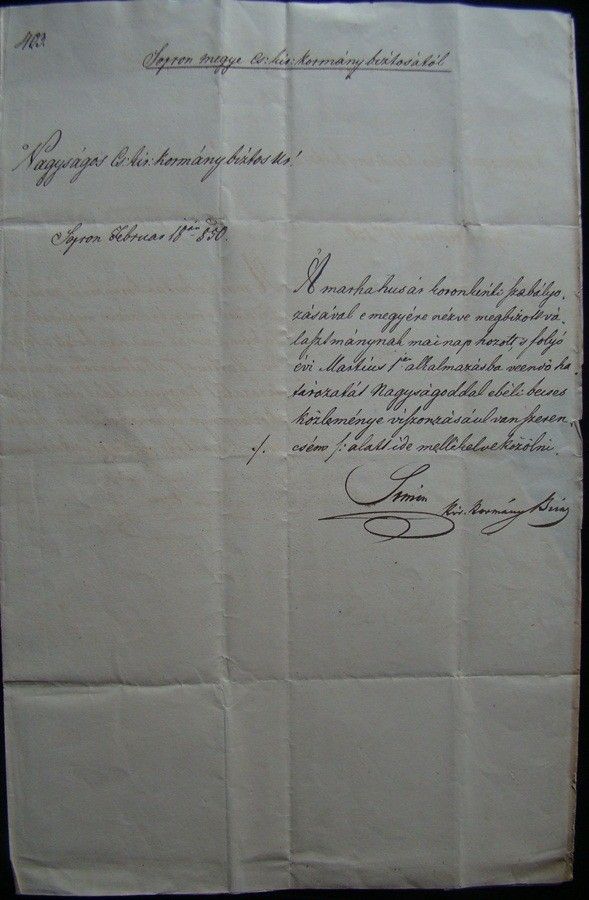 403.
Sopron megye Cs: kir: kormány biztosától
Nagyságos Cs: kir: kormány biztos Ur!
Sopron Februar 18án 850.
A marha hus ár koronkénti szabályo-
zásával e megyére nézve megbizott vá-
lasztmánynak mai nap hozott, s folyó
évi Martius 1én alkalmazásba veendő ha-
tározatát Nagyságoddal ebéli becses
közleménye viszonzásául van szeren-
./. csém /: alatt ide mellékelve közölni.
kir. kormány